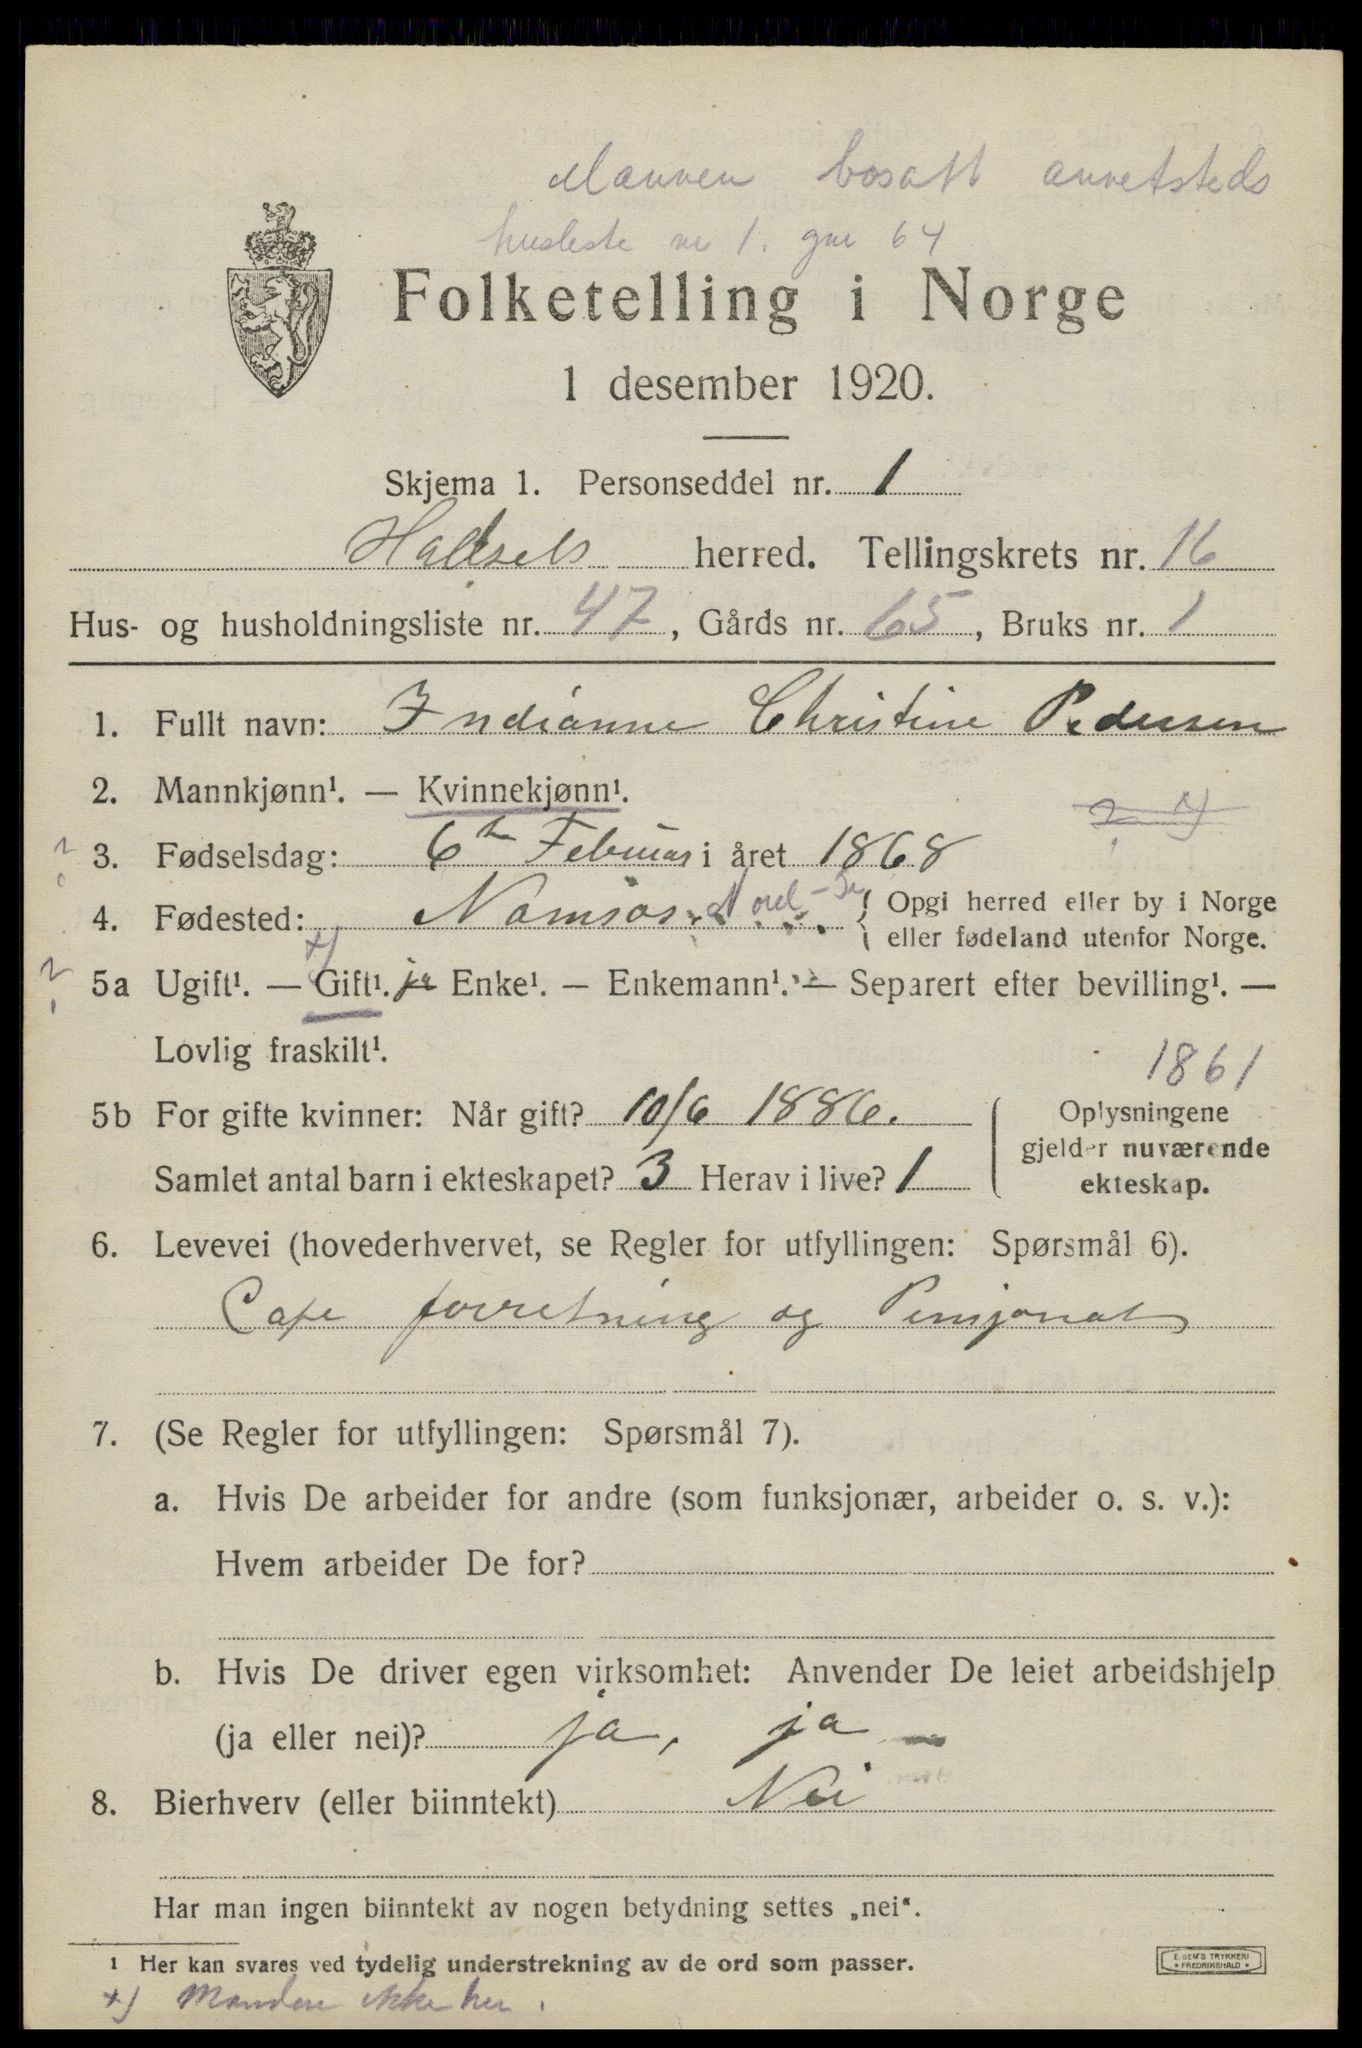 Mannen bosatt annetsteds
husliste nr 1. gnr 64
Folketelling i Norge
1 desember 1920.
Skjema 1. Personseddel nr. 1
Hadsels herred. Tellingskrets nr. 16
Hus- og husholdningsliste nr. 47, Gårds nr. 65, Bruks nr. 1
1. Fullt navn: Indianne Christine Pedersen
2. Mannkjønn¹. — Kvinnekjønn¹.
? 3. Fødselsdag: 6 Februar i året 1868
4. Fødested: Namsos. Nord-Tr { Opgi herred eller by i Norge
eller fødeland utenfor Norge.
+)
? 5a Ugift¹. — Gift¹. ja Enke¹. — Enkemann¹. — Separert efter bevilling¹. —
Lovlig fraskilt¹.
1861
5b For gifte kvinner: Når gift? 10/6 1886.
Samlet antal barn i ekteskapet? 3 Herav i live? 1
Oplysningene
gjelder nuværende
ekteskap.
6. Levevei (hovederhvervet, se Regler for utfyllingen: Spørsmål 6).
Cafe forretning og Pensjonat
7. (Se Regler for utfyllingen: Spørsmål 7).
a. Hvis De arbeider for andre (som funksjonær, arbeider o. s. v.):
Hvem arbeider De for?
b. Hvis De driver egen virksomhet: Anvender De leiet arbeidshjelp
(ja eller nei)? ja, ja
8. Bierhverv (eller biinntekt) Nei
Har man ingen biinntekt av nogen betydning settes „nei“.
¹ Her kan svares ved tydelig understrekning av de ord som passer.
E. SEM'S TRYKKERI
FREDRIKSHALD
+) Manden ikke her.